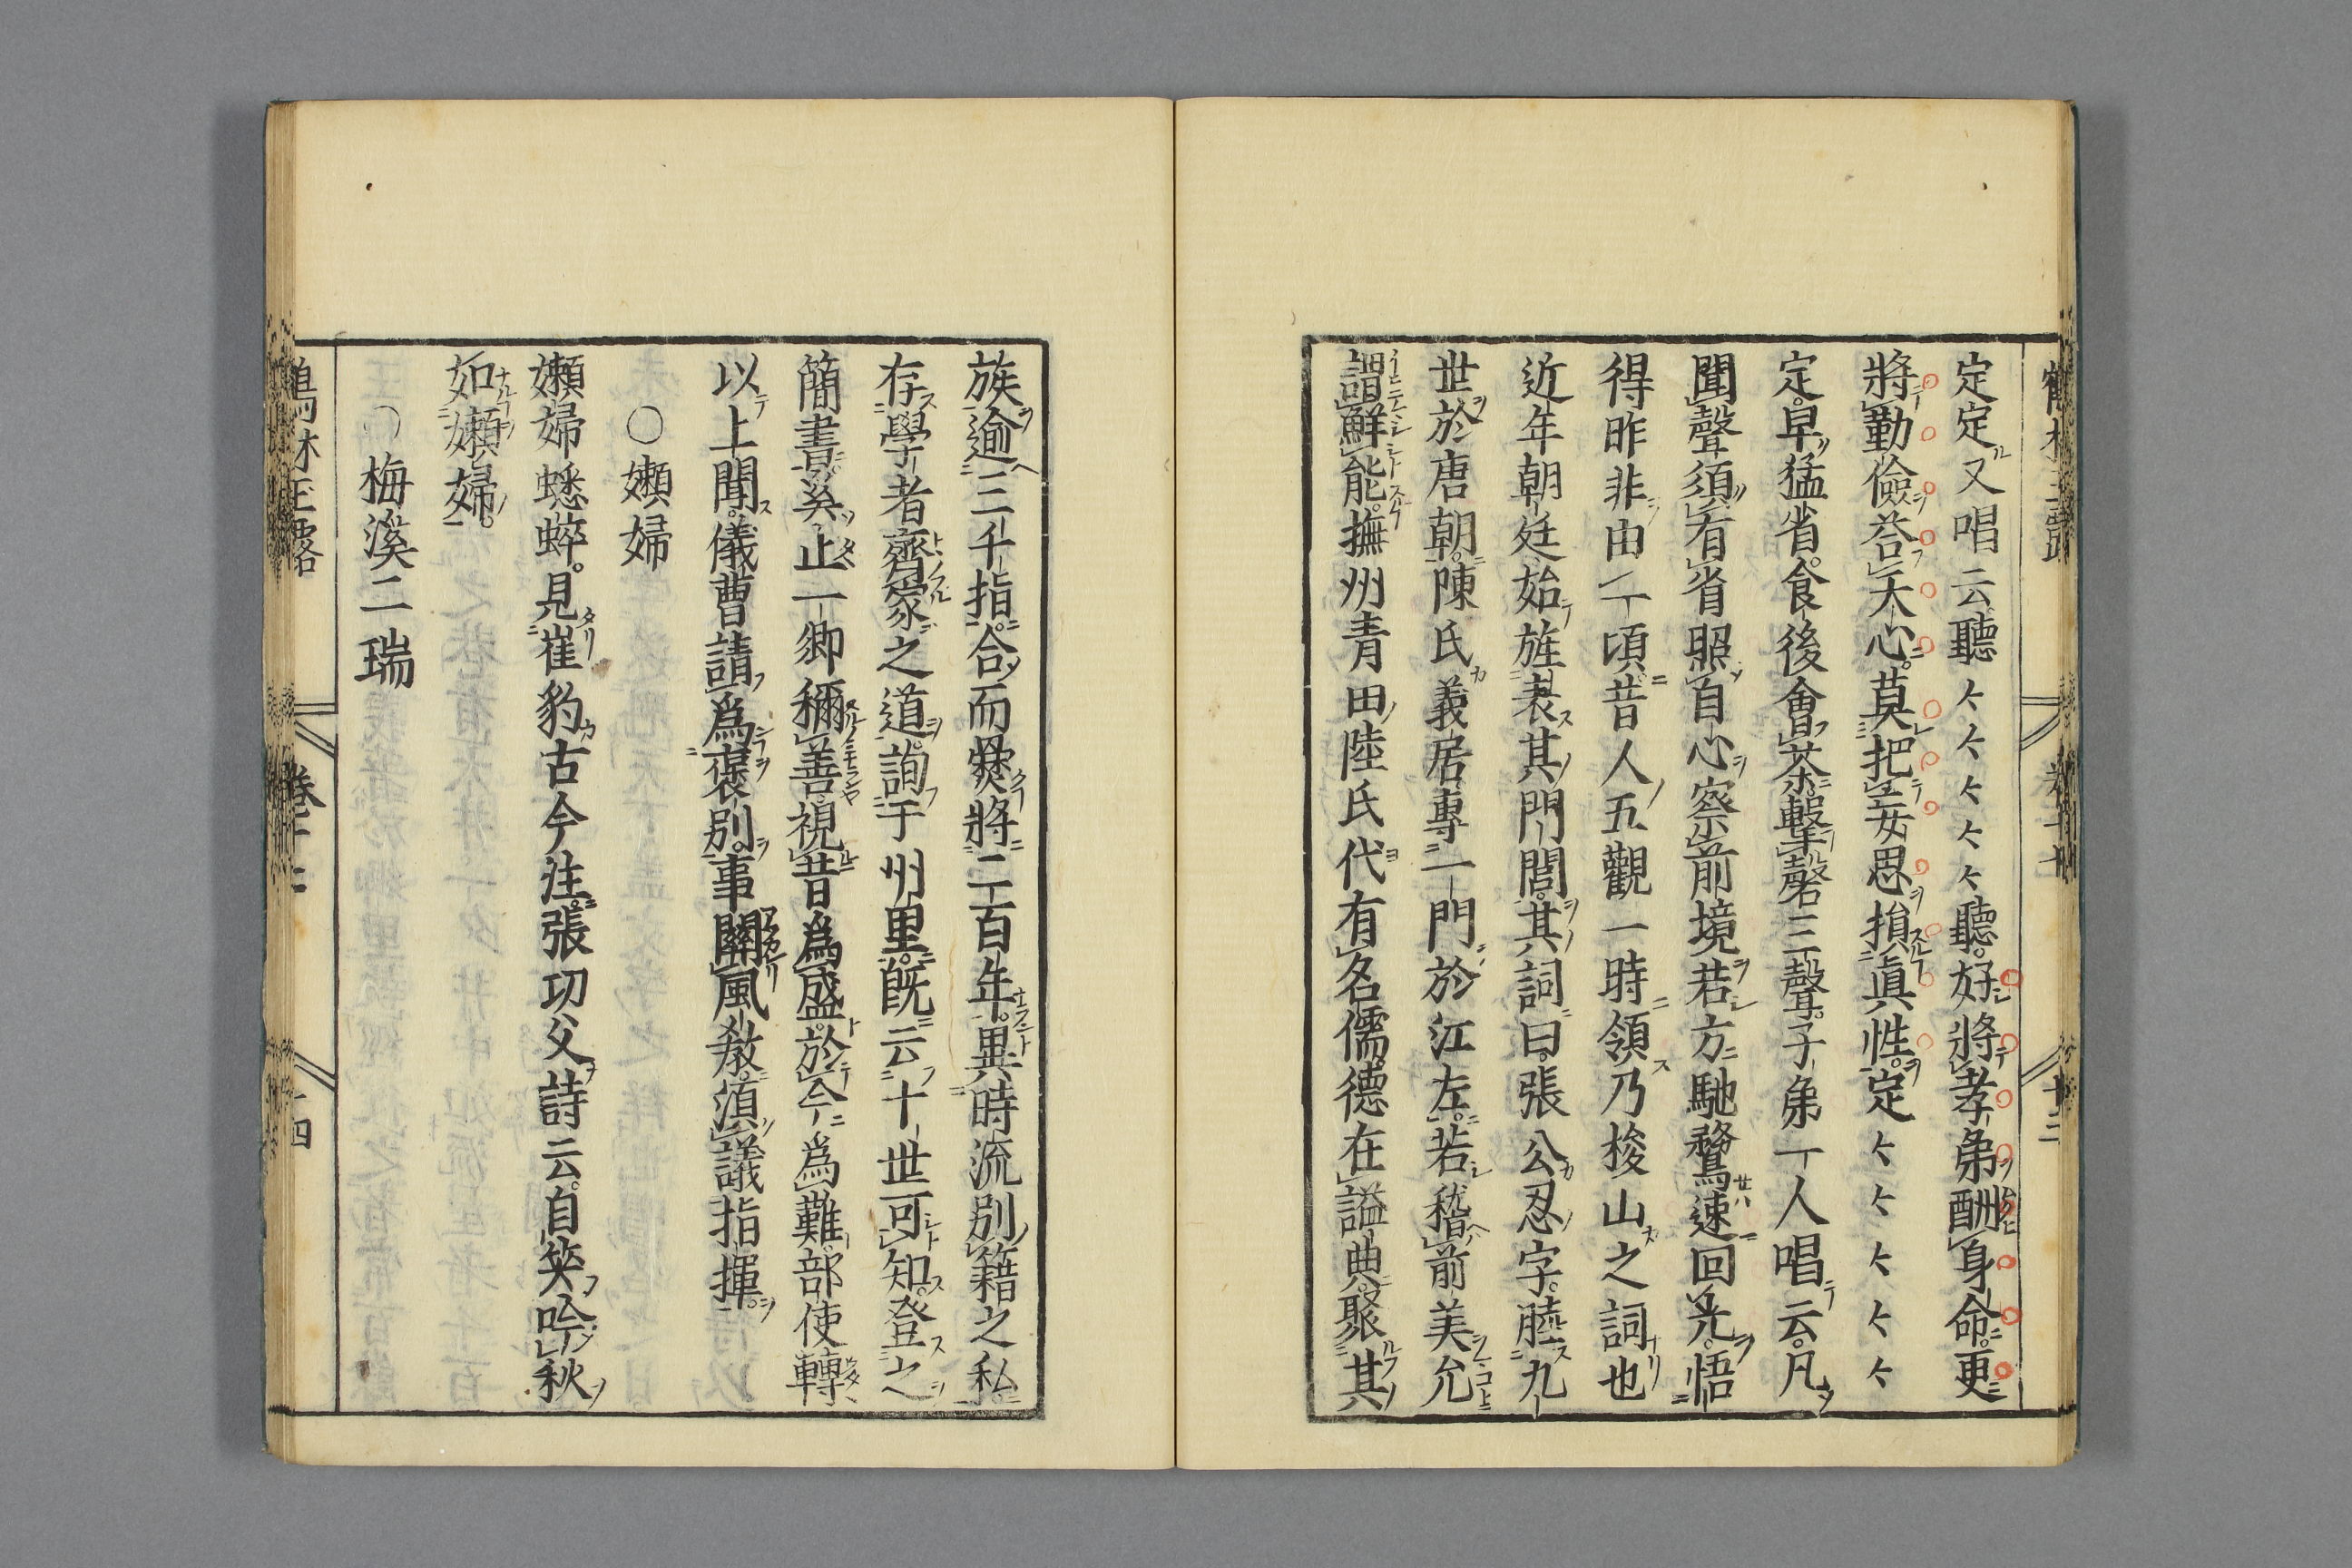 定定又唱云聽𠂉𠂉𠂉𠂉𠂉聽好將孝弟酬身命更
將勤儉荅天心莫把妄思損眞性定𠂉𠂉𠂉𠂉𠂉
定早猛省食後會茶擊磬三聲子弟一人唱云凡
聞聲須有省照自心察前境若方馳騖速回光悟
得昨非由一頃昔人五觀一時領乃梭山之詞也
近年朝廷始旌表其門閭其詞曰張公忍字睦九
世於唐朝陳氏義居專一門於江左若稽前美允
謂鮮能撫州青田陸氏代有名儒德在謚典聚其
族逾三千指合而爨將二百年異時流別籍之私
存學者齊家之道詢于州里旣云十世可知登之
簡書奚止一鄉稱善視昔爲盛於今爲難部使轉
以上聞儀曹請爲褒別事關風敎須議指揮
○嬾婦
嬾婦蟋蟀見崔豹古今注張功父詩云自笑吟秋
如嬾婦
○梅溪二瑞
卷十七